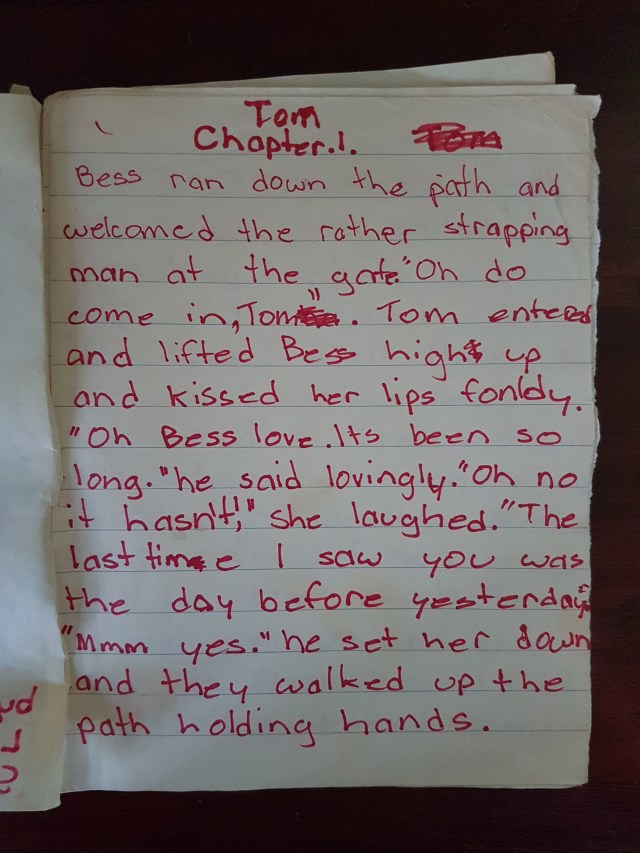 Tom
Chapter.1.
Bess ran down the path and
welcomed the rather strapping
man at the gate. "Oh do
come in, Tom". Tom entered
and lifted Bess high up
and kissed her lips fonldy.
"Oh Bess love. Its been so
long." he said lovingly. "Oh no
it hasn't!," she laughed. "The
last time I saw you was
the day before yesterday."
"Mmm yes." he set her down
and they walked up the
path holding hands.